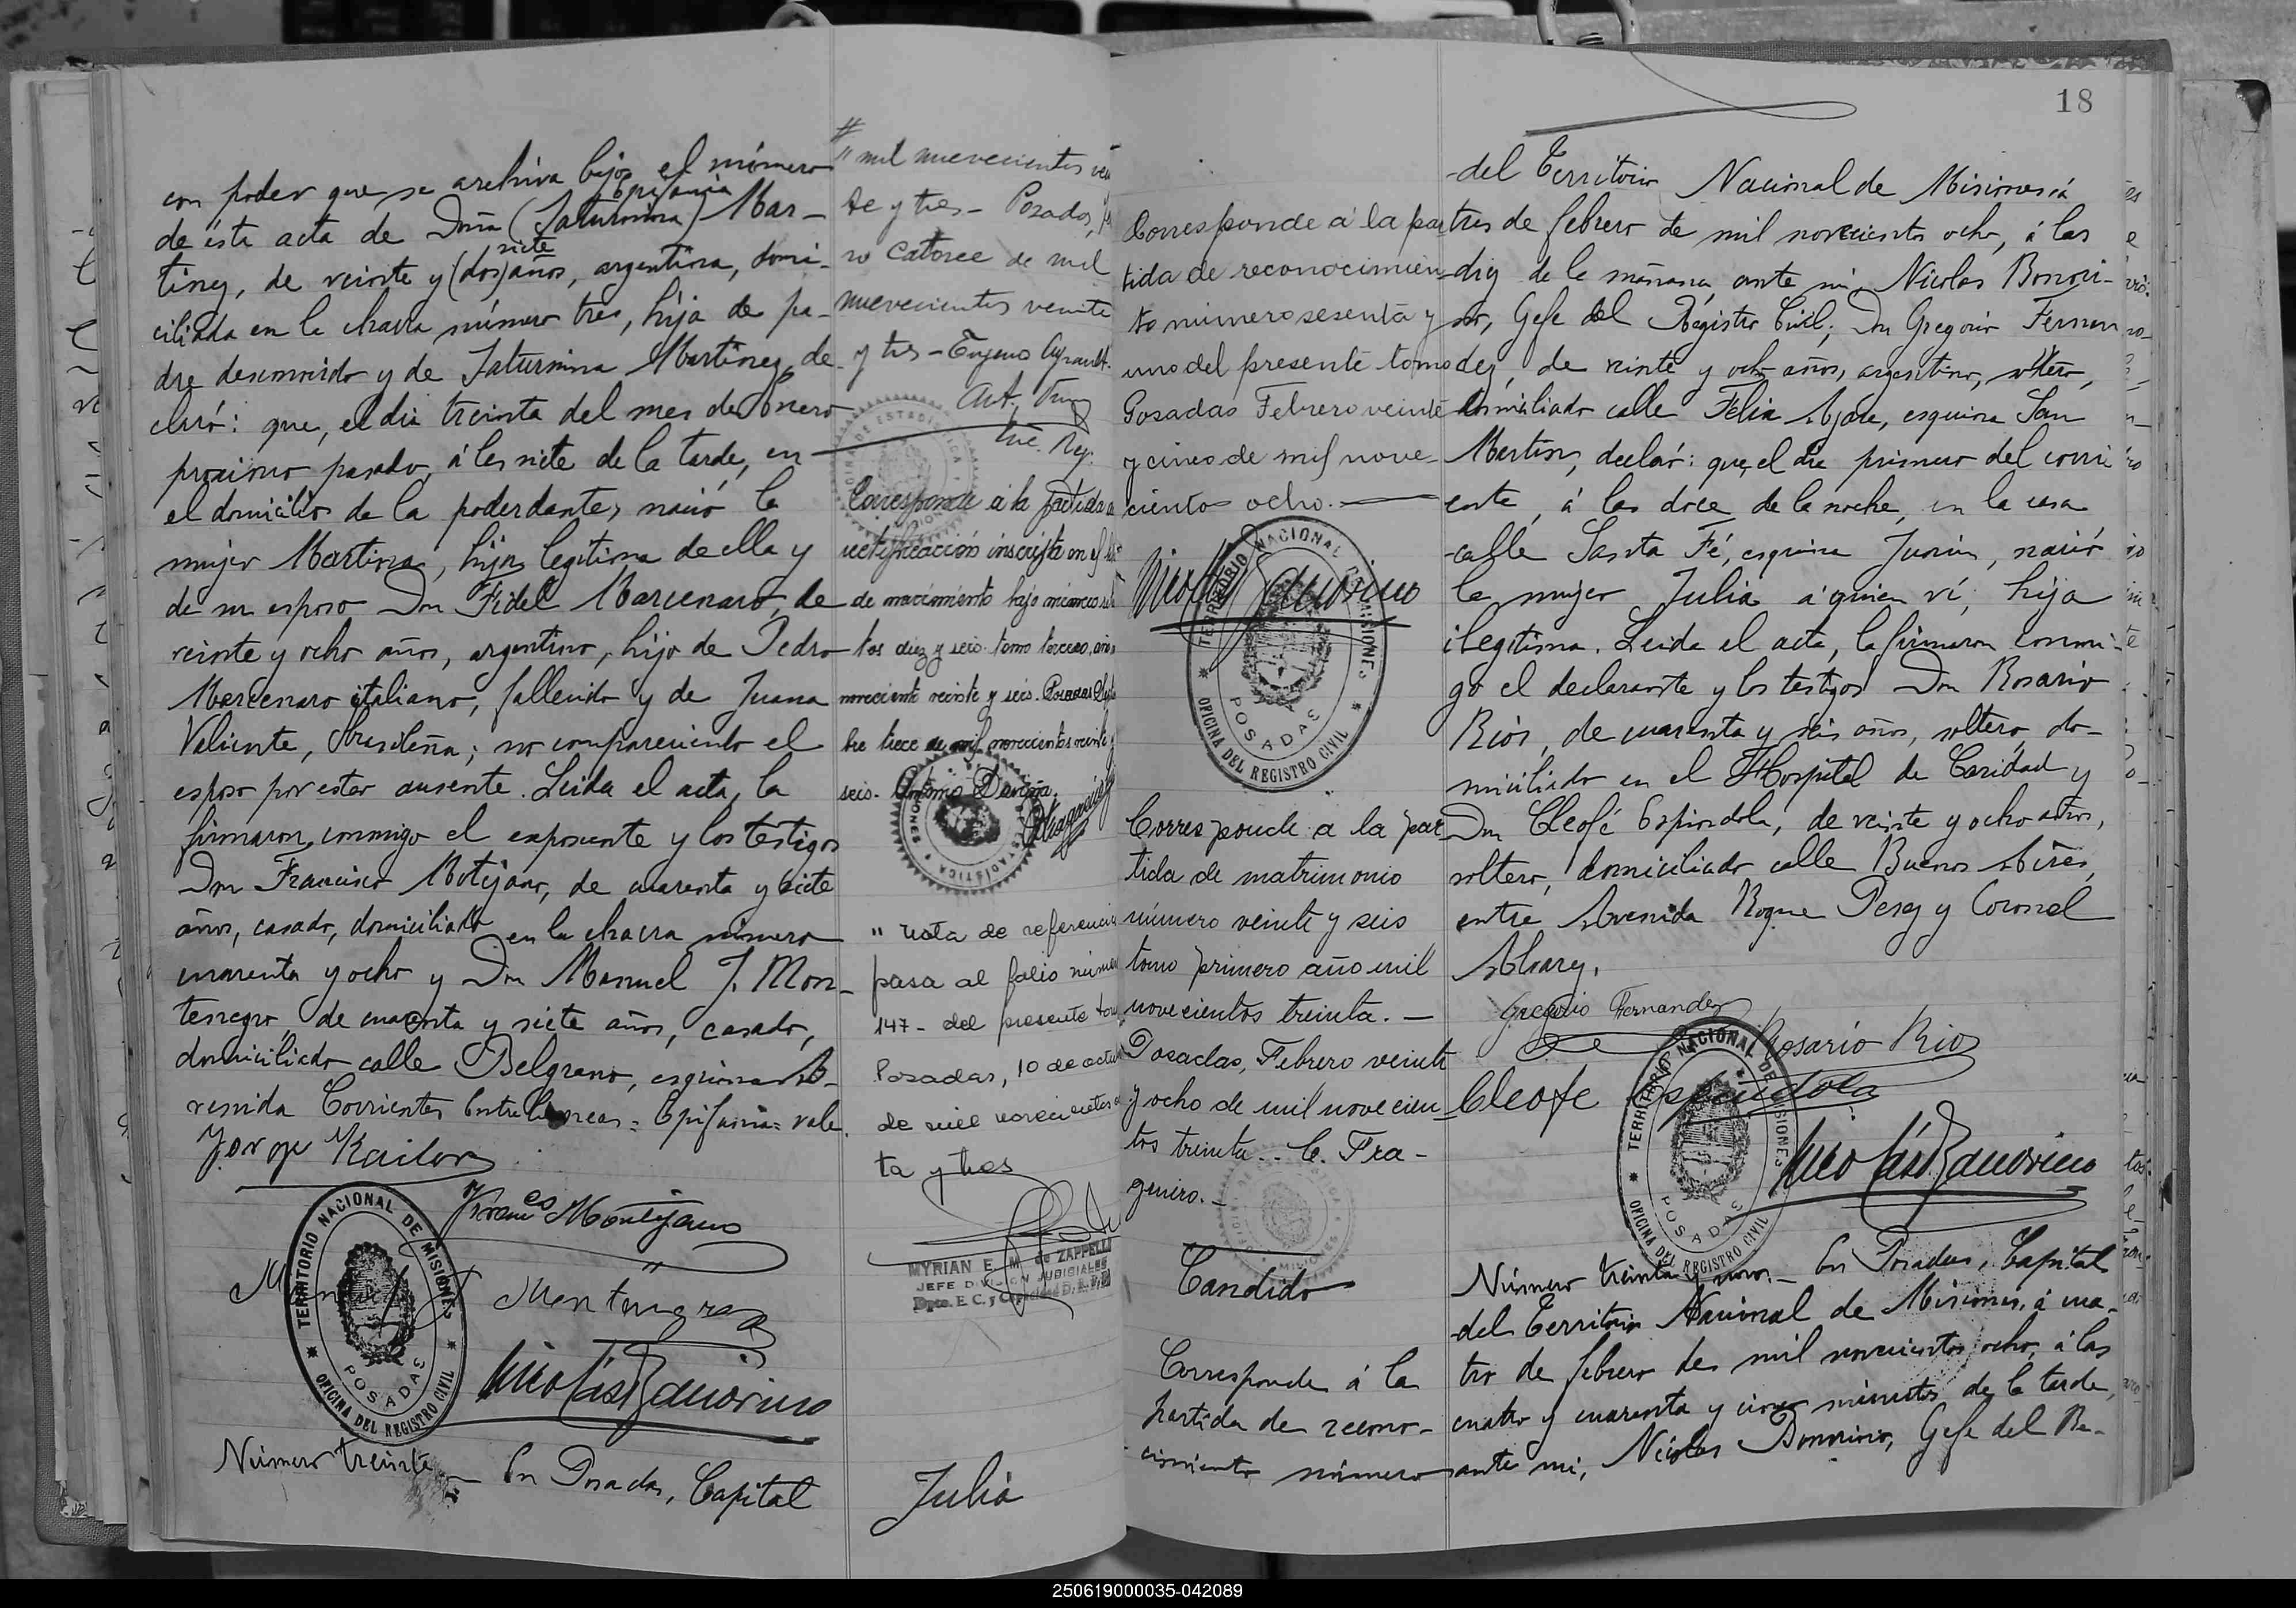 con poder que se archiva bajo el número
de éste acta de Dña (Saturnina) Epifania Mar-
tinez, de veinte y (dos) siete años, argentina, domi-
ciliada en la chacra número tres, hija de pa-
dre desconocido y de Saturnina Martinez, de-
claró: que, el dia treinta del mes de Enero
proximo pasado, á las siete de la tarde, en
el domicilio de la poderdante, nació la
mujer Martina, hija legitima de ella y
de su esposo Don Fidel Marcenaro, de
veinte y ocho años, argentino, hijo de Pedro
Marcenaro italiano, fallecido y de Juana
Valiente, brasileña; no compareciendo el
esposo por estar ausente. Leida el acta, la
firmaron conmigo el exponente y los testigos
Don Francisco Motejano, de cuarenta y siete
años, casado, domiciliado en la chacra número
cuarenta y ocho y Don Manuel J. Mon-
tenegro, de cuarenta y siete años, casado,
domiciliado calle Belgrano, esquina A-
venida Corrientes Entre lineas = Epifania = vale.
Jorge
Franco Montejano
Manuel J Montenegro
Nicolás Bonorino
TERRITORIO NACIONAL DE MISIONES
POSADAS
OFICINA DEL REGISTRO CIVIL
Número treinta - En Posadas, Capital
" mil nuevecientos vein
te y tres - Posadas,
ro catorce de mil
nuevecientos veinte
y tres - Eugenio
Corresponde á la partida
rectificación inscripta en el
de nacimiento bajo número
tos diez y seis tomo tercero, año
novecientos veinte y seis. Posadas
bre trece de mil novecientos veinte y
seis. Antonio
" nota de referencia
pasa al folio número
147 - del presente tomo
Posadas, 10 de octu
de mil novecientos
ta y tres
MYRIAN E. M. de ZAPPELLI
JEFE DIVISION JUDICIALES
Dpto. E. C. y Capacidad
Julia
18
Corresponde á la par
tida de reconocimien-
to número sesenta y
uno del presente tomo
Posadas Febrero veinte
y cinco de mil nove-
cientos ocho.
Nicolás Bonorino
TERRITORIO NACIONAL DE MISIONES
POSADAS
OFICINA DEL REGISTRO CIVIL
Corresponde a la par
tida de matrimonio
número veinte y seis
tomo primero año mil
novecientos treinta. -
Posadas, Febrero veinte
y ocho de mil novecien
tos treinta. - C. Fra-
gueiro. -
Candido
Corresponde á la
partida de recono-
cimiento número
del Territorio Nacional de Misiones á
tres de febrero de mil novecientos ocho, á las
diez de la mañana, ante mi, Nicolas Bonori-
no, Gefe del Registro Civil, Don Gregorio Fernan
dez, de veinte y ocho años, argentino, soltero,
domiciliado calle Félix Azara, esquina San
Martin, declaró: que, el dia primero del corri
ente, á las doce de la noche, en la casa
calle Santa Fé, esquina Junin, nació
la mujer Julia á quien ví, hija
ilegitima. Leida el acta, la firmaron conmi-
go el declarante y los testigos Don Rosario
Rios, de cuarenta y seis años, soltero, do-
miciliado en el Hospital de Caridad y
Don Cleofé Espindola, de veinte y ocho años,
soltero, domiciliado calle Buenos Aires,
entre Avenida Roque Perez y Coronel
Alvarez.
Gregorio Fernandez
Rosario Rios
Cleofe Espindola
Nicolás Bonorino
TERRITORIO NACIONAL DE MISIONES
POSADAS
OFICINA DEL REGISTRO CIVIL
Número treinta y uno. - En Posadas, Capital
del Territorio Nacional de Misiones, á cua-
tro de febrero de mil novecientos ocho, á las
cuatro y cuarenta y cinco minutos de la tarde,
ante mi, Nicolas Bonorino, Gefe del Re-
250619000035-042089